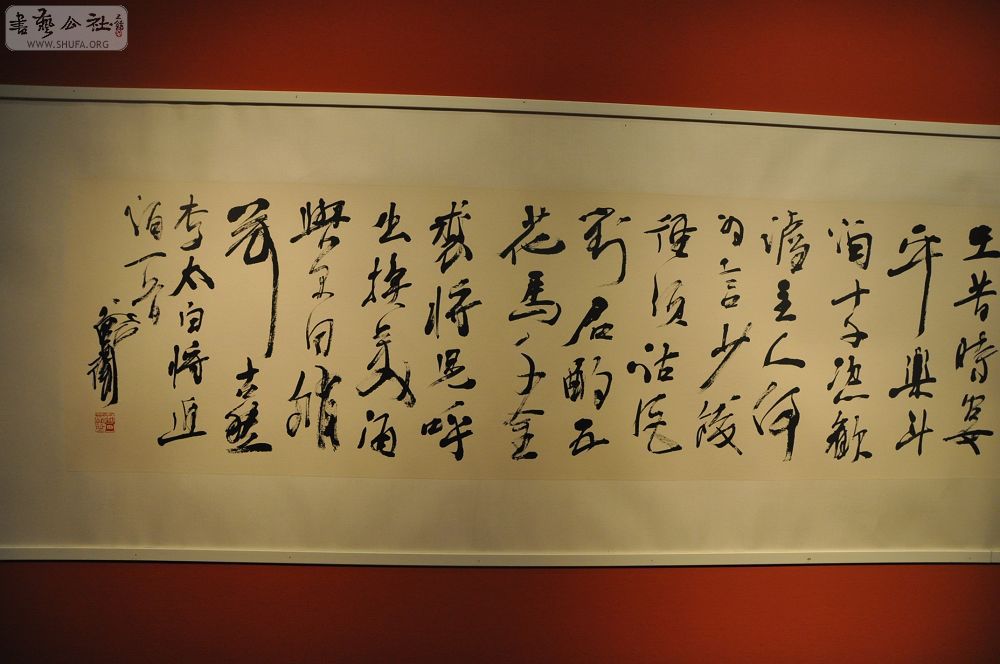 書藝公社
WWW.SHUFA.ORG
王昔時宴
平樂斗
酒十千恣歡
謔主人何
为言少錢
徑須沽取
對君酌五
花馬千金
裘將児呼
出換美酒
與尔同銷
萬古愁
李太白將進
酒一首